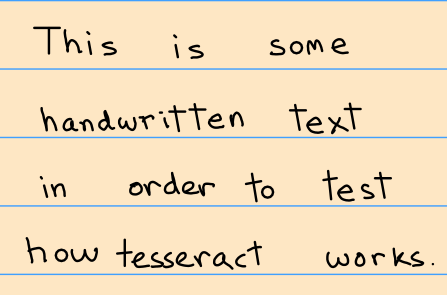 This is some
handwritten text
in order to test
how tesseract works.